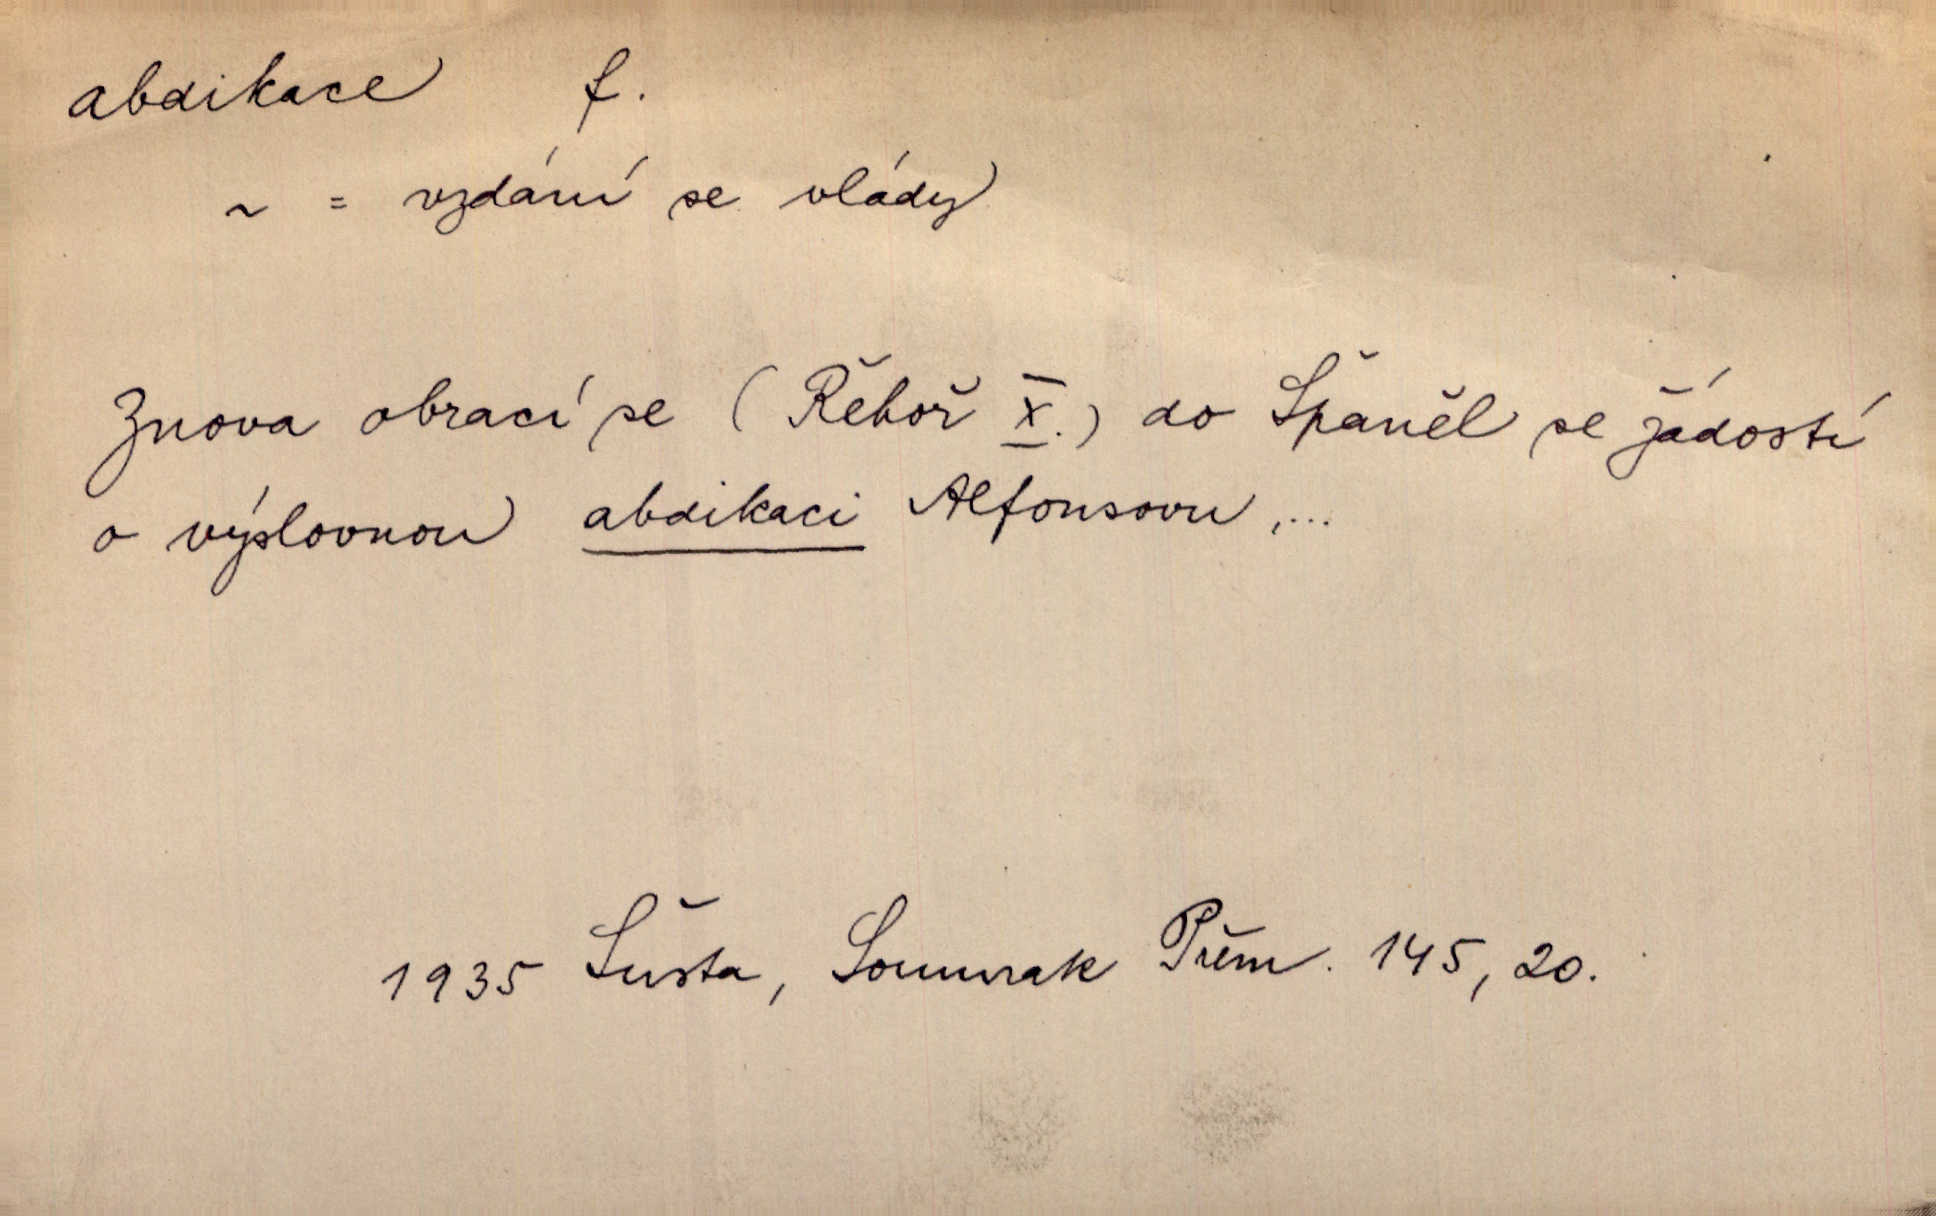 abdikace f.
~ = vzdání se vlády
Znova obrací se (Řehoř X.) do Španěl se žádostí
o výslovnou abdikaci Alfonsovu,...
1935 Šusta, Soumrak Přem. 145, 20.